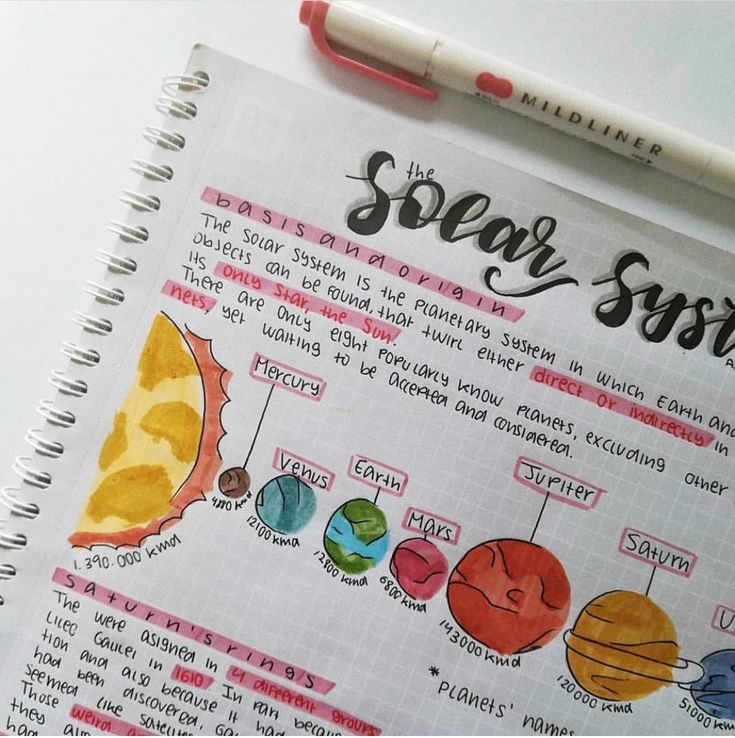 MILDLINER
the
Solar Syst
basis and origin
The solar system is the planetary system in which Earth and
objects can be found, that twirl either direct or indirectly in
its only star, the Sun.
There are only eight popularly know planets, excluding other
nets, yet waiting to be accepted and considered.
Mercury
Venus
Earth
Mars
Jupiter
Saturn
U
1.390.000 kmd
4880 kmd
12100 kmd
12800 kmd
6800 kmd
143000 kmd
120000 kmd
51000 km
saturn's rings
The were asigned in 4 different groups
lileo Galilei in 1610. In part becaus
tion and also because it had
had been discovered. Ga
seemed like satellite
Those weird a
they al
had
*planets' names